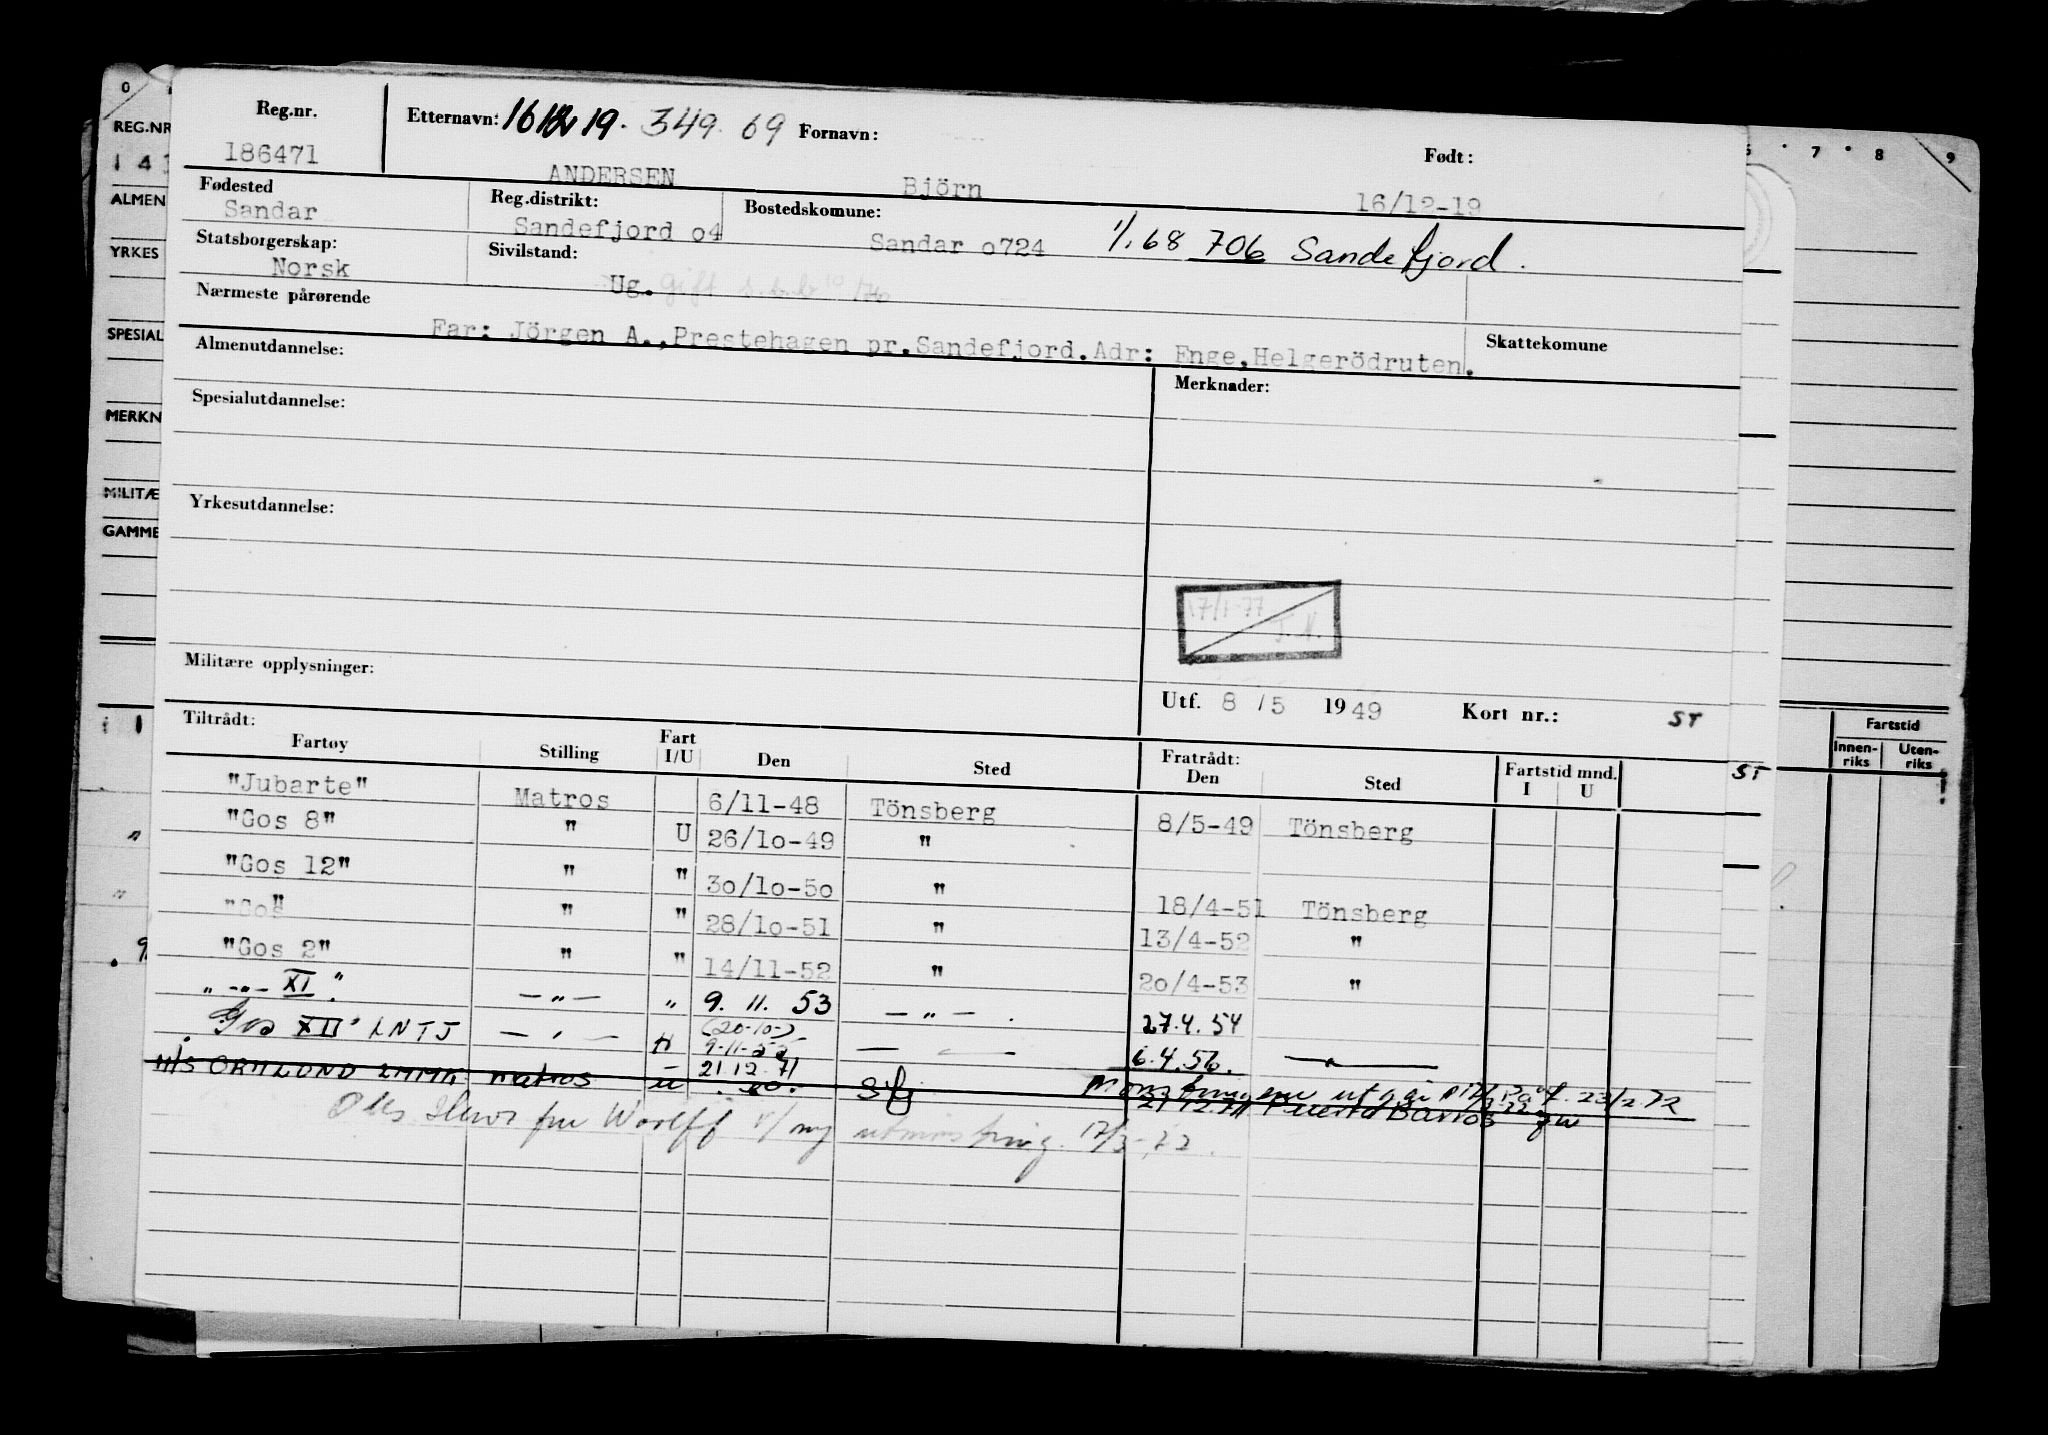 Reg.nr. Etternavn: 16 12 19. 349. 69 Fornavn: Født:
186471 ANDERSEN Björn 16/12-19
Fødested Reg.distrikt: Bostedskomune:
Sandar Sandefjord o4 Sandar o724 1/1.68 706 Sandefjord.
Statsborgerskap: Sivilstand:
Norsk Ug. Gift
Nærmeste pårørende
Far: Jörgen A.,Prestehagen pr.Sandefjord.Adr: Enge,Helgerödruten.
Skattekomune
Almenutdannelse:
Merknader:
Spesialutdannelse:
Yrkesutdannelse:
17/1-77
Militære opplysninger:
Utf. 8/5 1949 Kort nr.: ST
Tiltrådt: Fratrådt:
Fartøy Stilling Fart I/U Den Sted Den Sted Fartstid mnd. I U
"Jubarte" Matros 6/11-48 Tönsberg 8/5-49 Tönsberg
"Gos 8" " U 26/1o-49 "
"Gos 12" " " 3o/1o-5o " 18/4-51 Tönsberg
"Gos " " " 28/1o-51 " 13/4-52 "
"Gos 2" " " 14/11-52 " 2o/4-53 "
" -"- XI" —"— " 9. 11. 53 —"— . 27.4.54
Gos XII" LNTJ —"— (20-10-)
9-11-55 — " — 6.4.56. —"—
M/S ORMLUND matros u 21 12 71 Sfj
21 12 71 Puerto Barrios
23/2.72
fru Woolff v/ ny utmønstring. 17/3-72.
REG.NR
ALMEN
YRKES
SPESIAL
MERKN
MILITÆ
GAMME
0
7 8 9
Fartstid
Innen-riks Uten-riks
ST